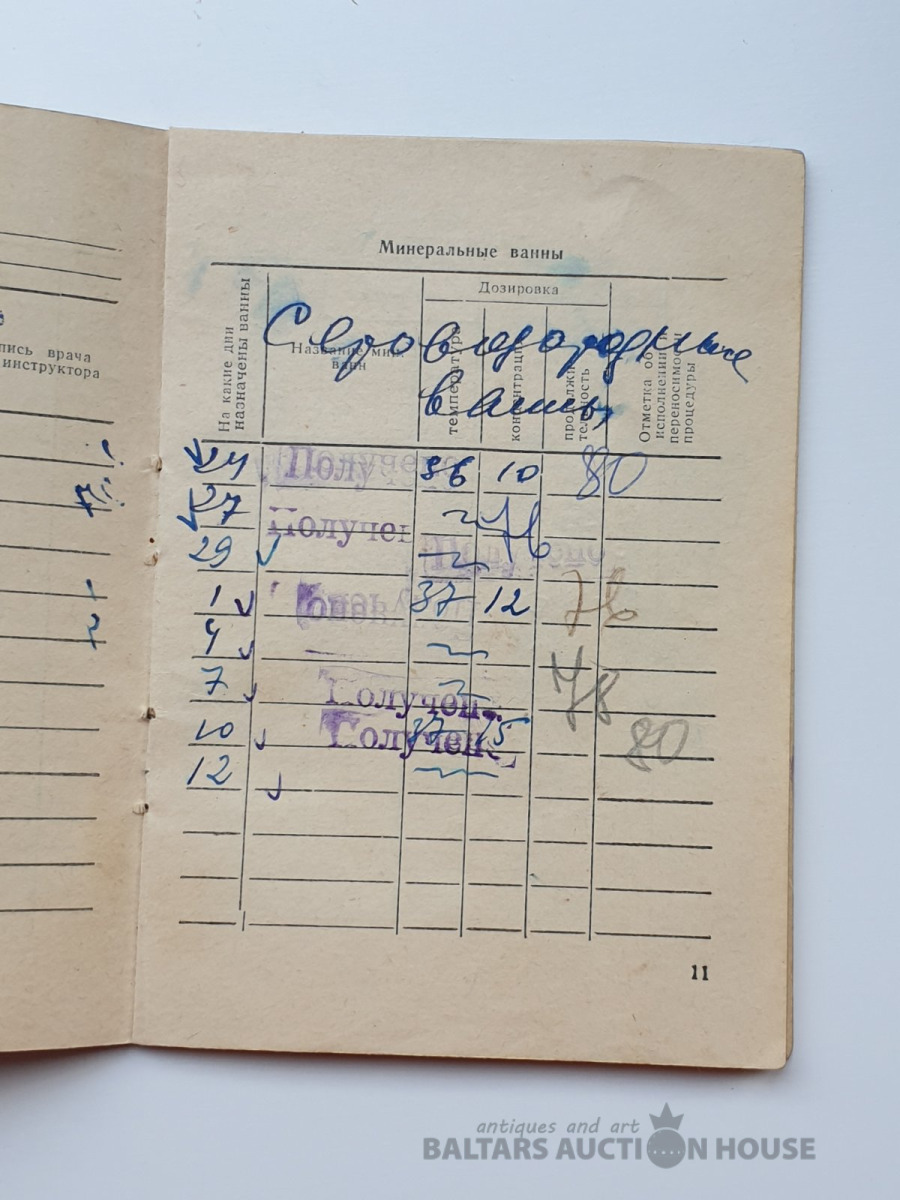 пись врача
инструктора
Минеральные ванны
На какие дни назначены ванны
Название мин. ванн
Дозировка
температура
концентрац
продолжи
тельность
Отметка об
исполнении и
переносимос
процедуры
Сероводородные
ванны
24 Получено 36 10 80
27 Получен 76
29 Получено
1 37 12 76
4
7 Получен 78
10 Получено 37 15 80
12
11
antiques and art
BALTARS AUCTION HOUSE